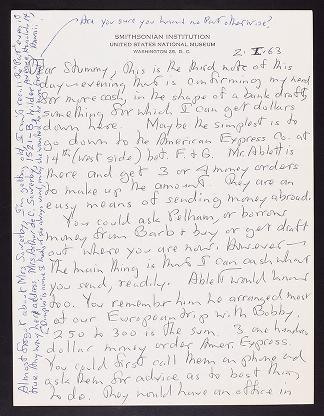 Are you sure you wound no Put otherwise?
SMITHSONIAN INSTITUTION
UNITED STATES NATIONAL MUSEUM
WASHINGTON 25, D. C.
2. I. 63
Dear Stummy, This is the third note of this
day & evening that is confirming my need
for more cash, in the shape of a bank draft,
something for which I can get dollars
down here. Maybe the simplest is to
go down to the American Express Co. at
14th (west side) bet. F. & G. Mr. Ablett is
there and get 3 or 4 money orders
to make up the amount. They are an
easy means of sending money abroad.
You could ask Pelham, or borrow
money from Barb & buy or get draft
out where you are now. However
The main thing is that I can cash what
you send, readily. Ablett would know
too. You remember him he arranged most
of our European trip with Bobby.
250 to 300 is the sum. 3 one hundred
dollar money order Amer. Express.
You could first call them on phone and
ask them for advice as to best thing
to do. They would have an office in
Almost forgot about Mrs Swezey. I'm getting old